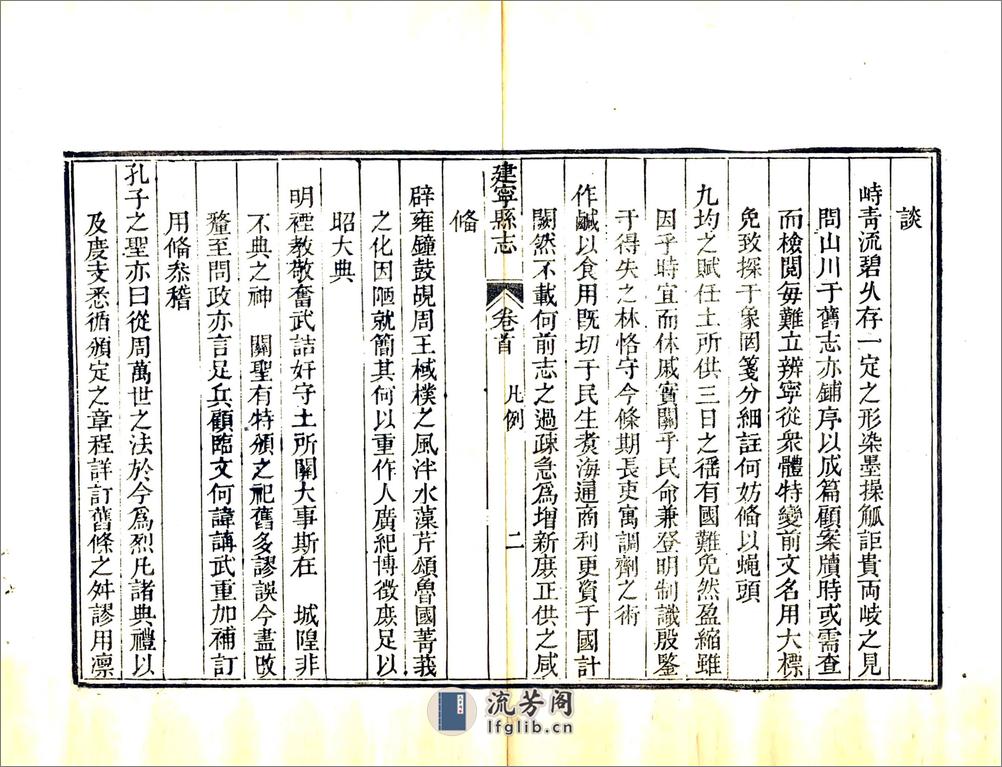 談
峙青流碧乆存一定之形染墨操觚詎貴両岐之見
問山川于舊志亦鋪序以成篇顧案牘時或需查
而檢閱每難立辨寧從衆體特變前文名用大標
免致探于象罔箋分細註何妨俻以蝇頭
九均之賦任土所供三日之徭有國難免然盈縮雖
因乎時宜而休戚實關乎民命兼登明制識殷鑒
于得失之林恪守今條期長吏寓調劑之術
作鹹以食用既切于民生煑海通商利更資于國計
闕然不載何前志之過疎急爲增新庻正供之咸
俻
建寧縣志 卷首 凡例 二
辟雍鐘鼓覘周王棫樸之風泮水藻芹頌魯國菁莪
之化因陋就簡其何以重作人廣紀博徵庻足以
昭大典
明禋教敬奮武詰奸守土所關大事斯在 城隍非
不典之神 關聖有特頒之祀舊多謬誤今盡攺
釐至問政亦言足兵顧臨文何諱講武重加補訂
用俻叅稽
孔子之聖亦曰從周萬世之法於今爲烈凡諸典禮以
及度支悉循頒定之章程詳訂舊條之舛謬用凛
流芳阁
lfglib.cn